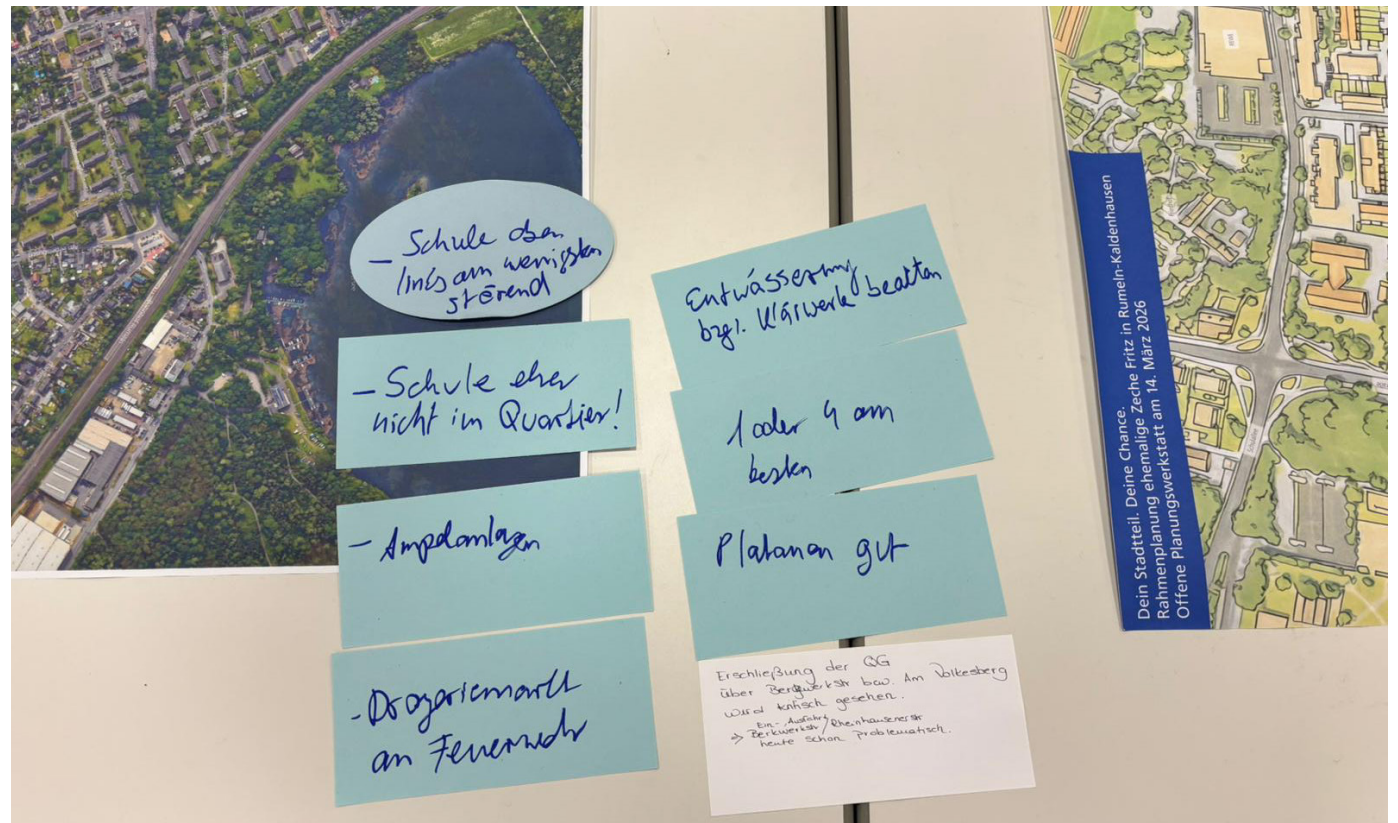 – Schule oben
links am wenigsten
störend
– Schule eher
nicht im Quartier!
– Ampelanlagen
- Drogeriemarkt
an Feuerwehr
Entwässerung
bzgl. Klärwerk beachten
1 oder 4 am
besten
Platanen gut
Erschließung der QG
über Bergwerkstr bzw. Am Volkesberg
wird kritisch gesehen.
Ein-, Ausfahrt
→ Berkwerkstr/Rheinhausenerstr
heute schon problematisch.
Dein Stadtteil. Deine Chance.
Rahmenplanung ehemalige Zeche Fritz in Rumeln-Kaldenhausen
Offene Planungswerkstatt am 14. März 2026